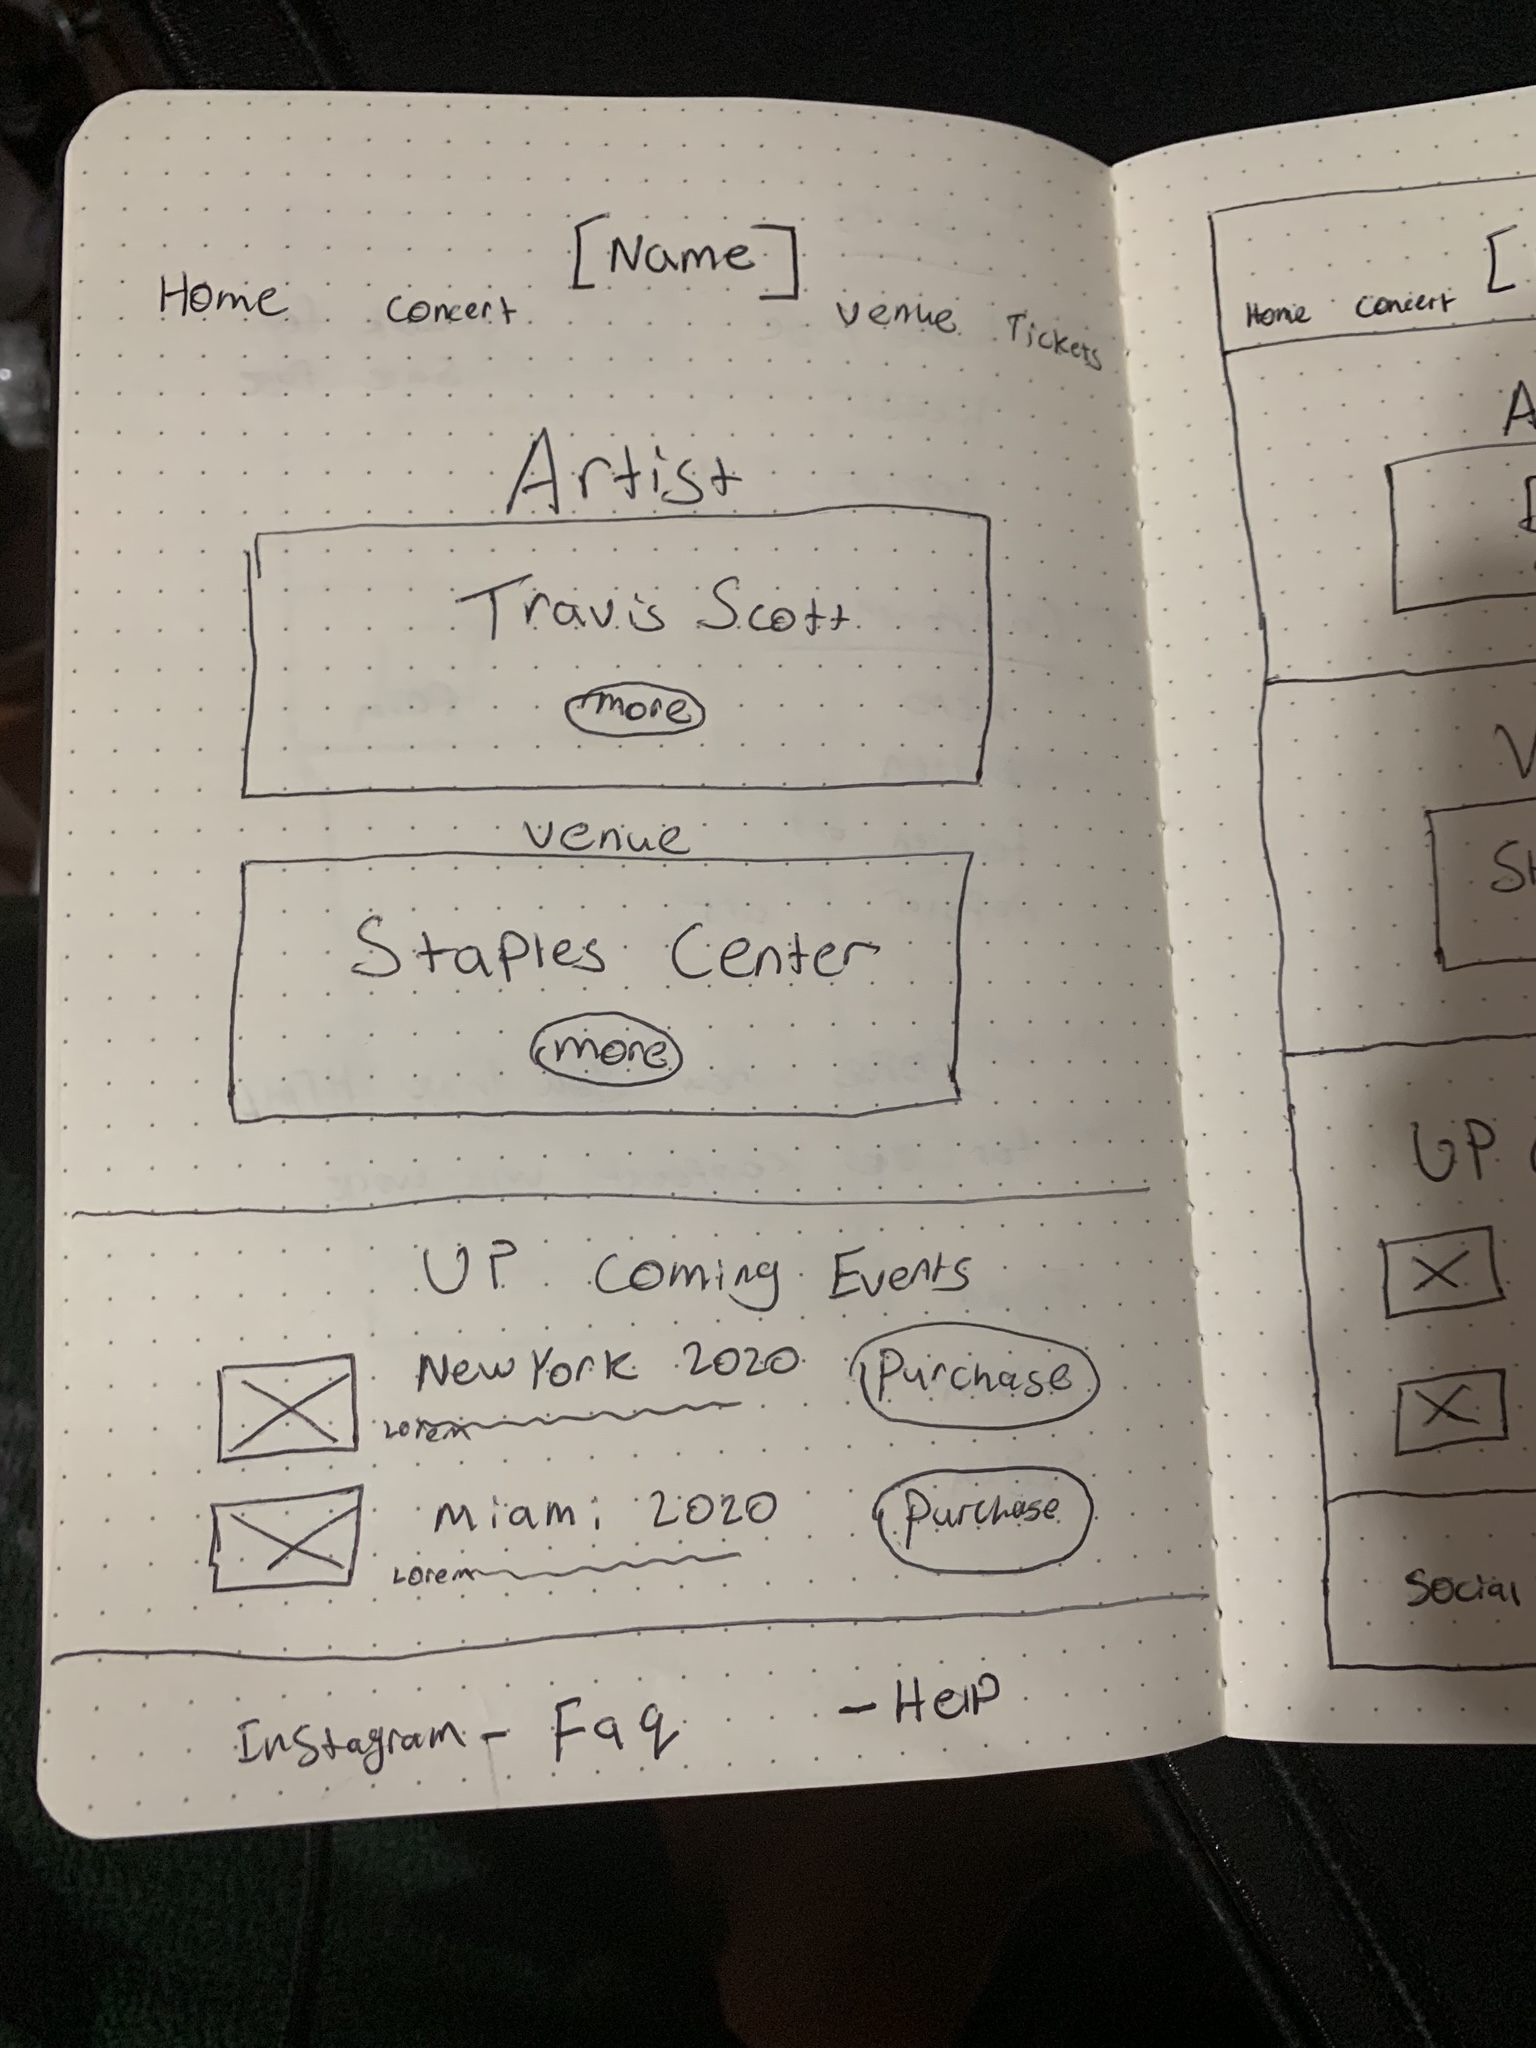 [Name]
Home Concert Venue Tickets
Artist
Travis Scott
more
Venue
Staples Center
more
UP Coming Events
New York 2020 Purchase
Lorem
Miami 2020 Purchase
Lorem
Instagram - Faq - Help
[
Home Concert
A
V
St
UP C
Social